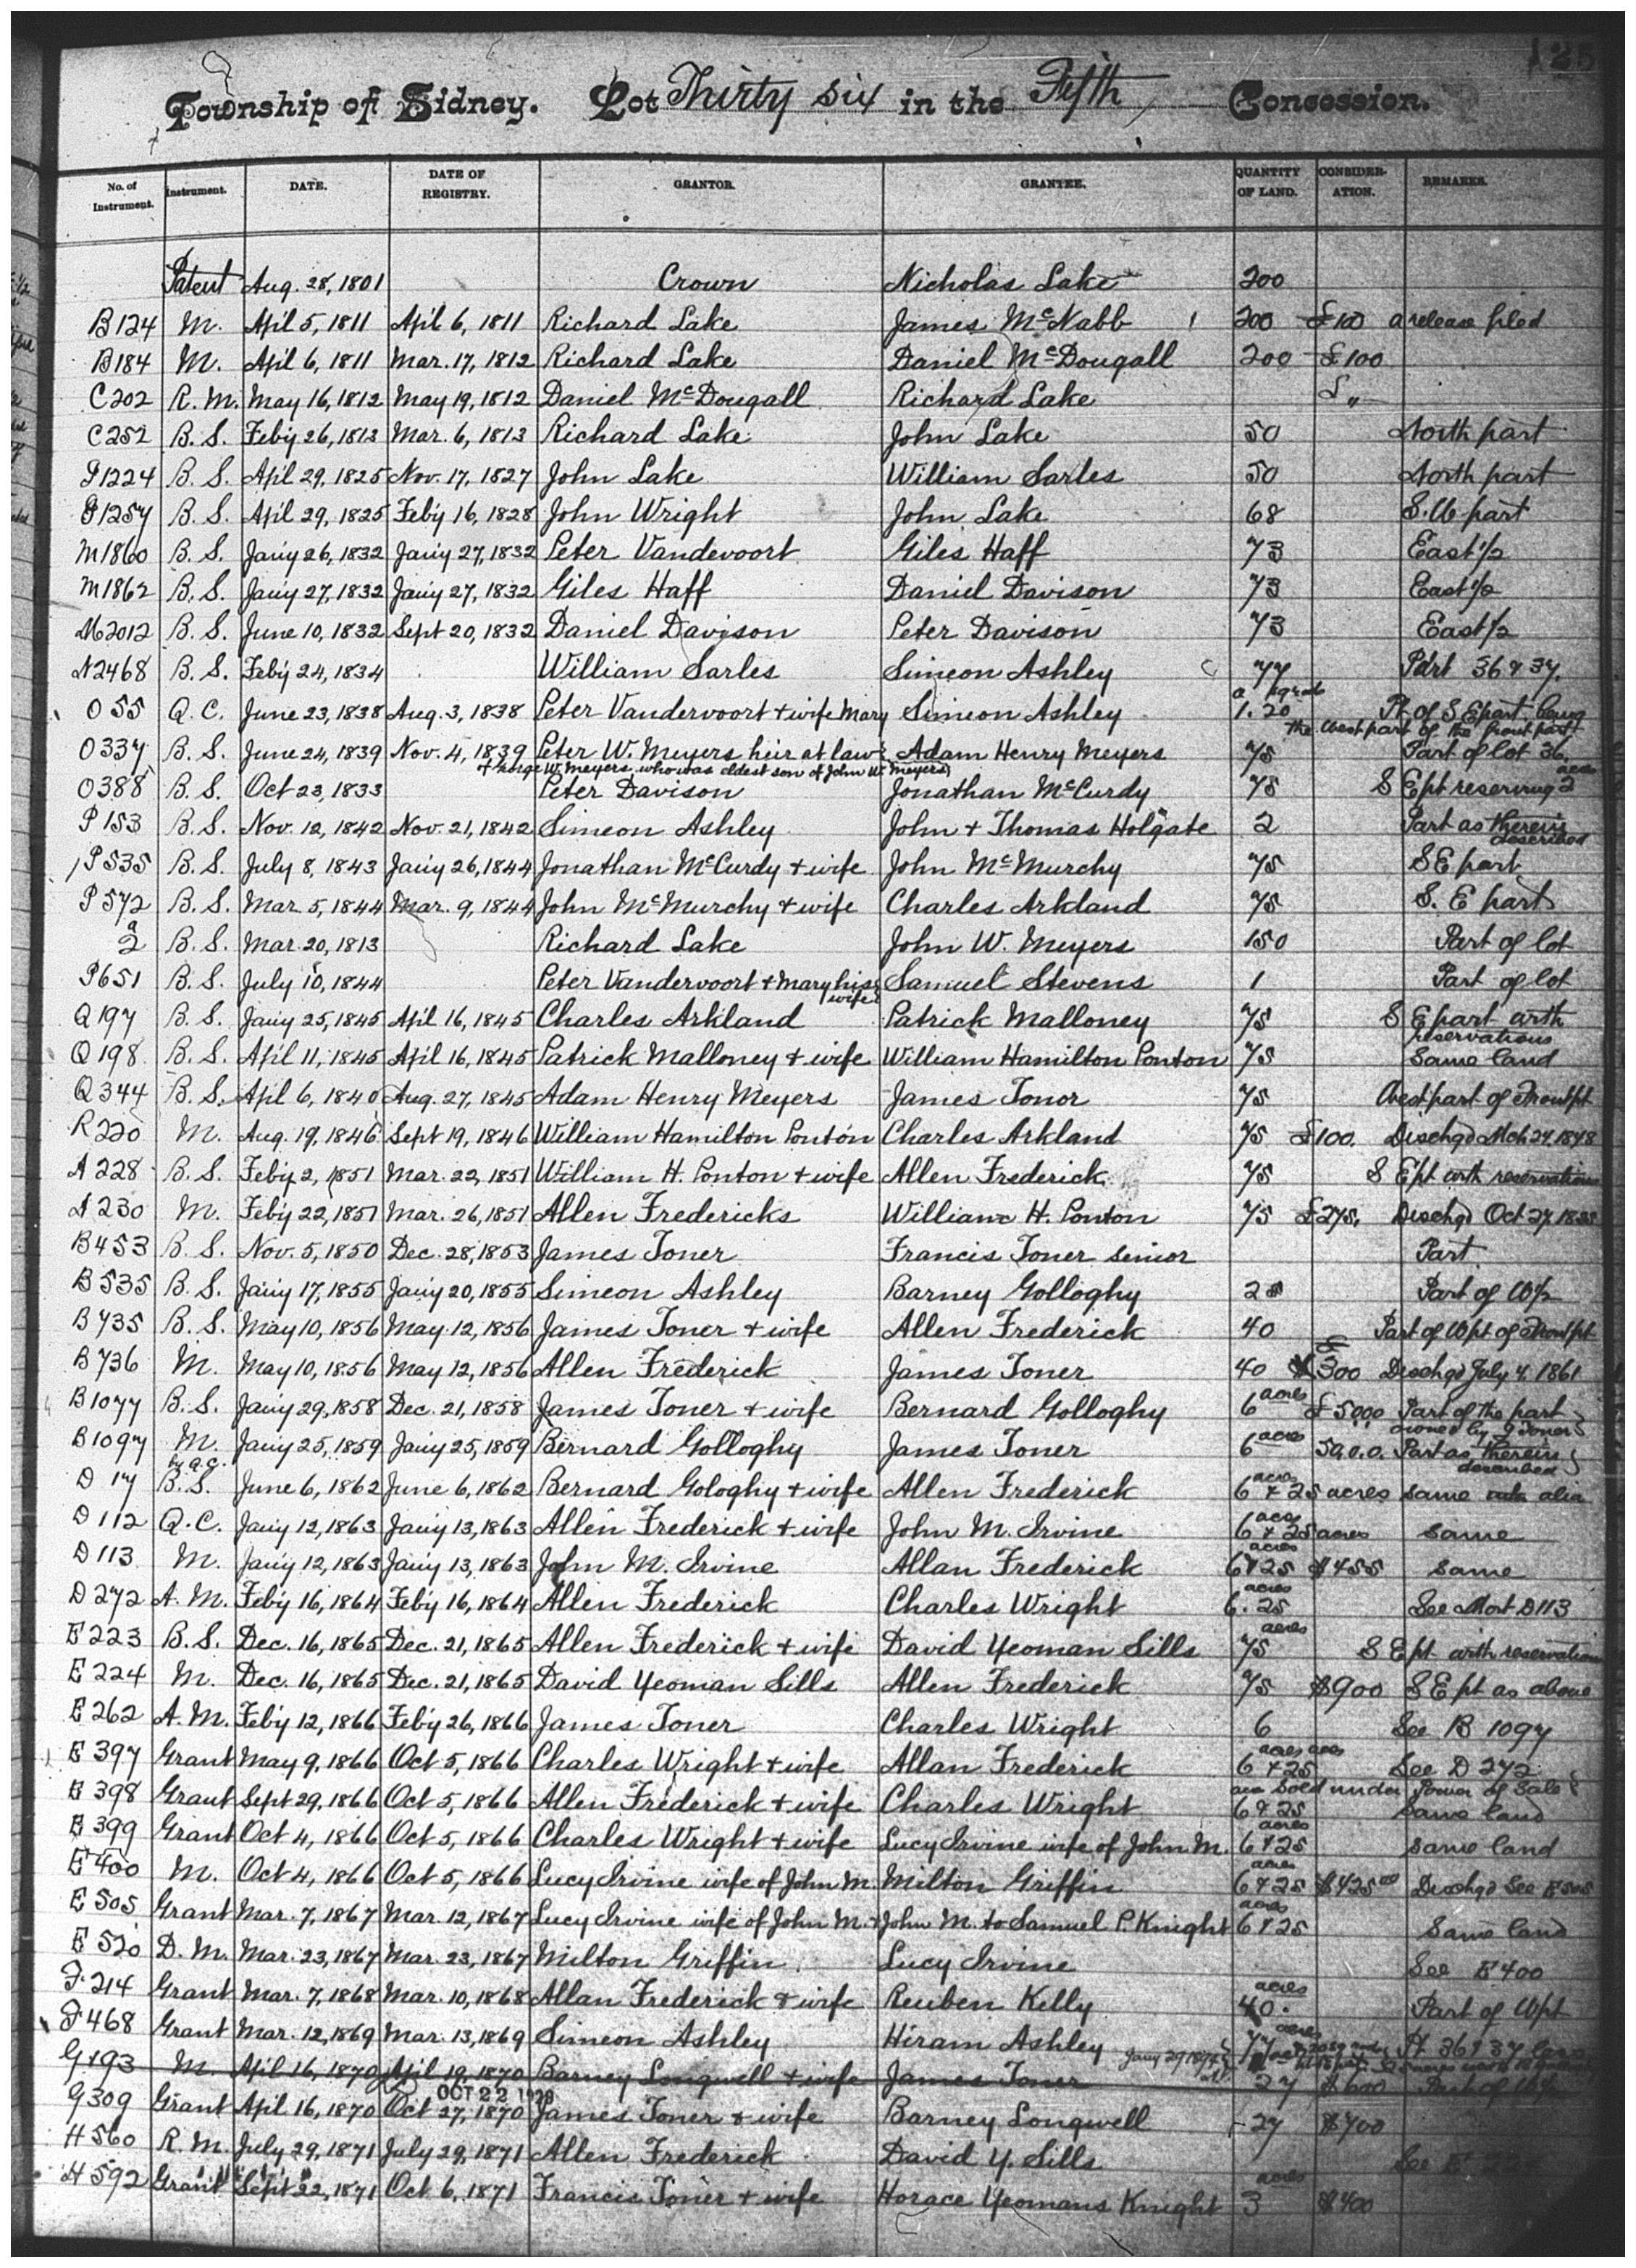 125
Township of Sidney. Lot Thirty six in the Fifth Concession.
No. of Instrument. Instrument. DATE. DATE OF REGISTRY. GRANTOR. GRANTEE. QUANTITY OF LAND. CONSIDER-ATION. REMARKS.
Patent Aug. 28, 1801 Crown Nicholas Lake 200
B124 M. Apil 5, 1811 Apil 6, 1811 Richard Lake James McNabb 200 £100 a release filed
B184 M. Apil 6, 1811 Mar. 17, 1812 Richard Lake Daniel McDougall 200 £100
C202 R. M. May 16, 1812 May 19, 1812 Daniel McDougall Richard Lake £ "
C252 B. S. Feb'y 26, 1813 Mar. 6, 1813 Richard Lake John Lake 50 North part
G1224 B. S. Apil 29, 1825 Nov. 17, 1827 John Lake William Sarles 50 North part
G1257 B. S. Apil 29, 1825 Feb'y 16, 1828 John Wright John Lake 68 S.W part
M1860 B. S. Jan'y 26, 1832 Jan'y 27, 1832 Peter Vandevoort Giles Haff 73 East ½
M1862 B. S. Jan'y 27, 1832 Jan'y 27, 1832 Giles Haff Daniel Davison 73 East ½
M2012 B. S. June 10, 1832 Sept 20, 1832 Daniel Davison Peter Davison 73 East ½
N2468 B. S. Feb'y 24, 1834 William Sarles Simeon Ashley 77 Part 36 & 37.
O 55 Q. C. June 23, 1838 Aug. 3, 1838 Peter Vandervoort + wife Mary Simeon Ashley 1. 20 Pt. of S E part being
the West part of the front part
O337 B. S. June 24, 1839 Nov. 4, 1839 Peter W. Meyers heir at law Adam Henry Meyers 75 Part of lot 36
of George W. Meyers, who was oldest son of John W. Meyers
O388 B. S. Oct 23, 1833 Peter Davison Jonathan McCurdy 75 S E pt reserving 2 acres
P153 B. S. Nov. 12, 1842 Nov. 21, 1842 Simeon Ashley John + Thomas Holgate 2 Part as therein described
P535 B. S. July 8, 1843 Jan'y 26, 1844 Jonathan McCurdy + wife John McMurchy 75 S E part
P572 B. S. Mar. 5, 1844 Mar. 9, 1844 John McMurchy + wife Charles Arkland 75 S. E part
a
2 B. S. Mar. 20, 1813 Richard Lake John W. Meyers 150 Part of lot
P651 B. S. July 10, 1844 Peter Vandervoort + Mary his wife Samuel Stevens 1 Part of lot
Q197 B. S. Jan'y 25, 1845 Apil 16, 1845 Charles Arkland Patrick Malloney 75 S E part with reservations
Q198 B. S. Apil 11, 1845 Apil 16, 1845 Patrick Malloney + wife William Hamilton Ponton 75 Same land
Q344 B. S. Apil 6, 1840 Aug. 27, 1845 Adam Henry Meyers James Tonor 75 West part of Front pt
R220 M. Aug. 19, 1846 Sept 19, 1846 William Hamilton Ponton Charles Arkland 75 £100. Dischgd Mch 24 1848
A 228 B. S. Feb'y 2, 1851 Mar. 22, 1851 William H. Ponton + wife Allen Frederick 75 S E pt with reservations
A 230 M. Feb'y 22, 1851 Mar. 26, 1851 Allen Fredericks William H. Ponton 75 £275. Dischgd Oct 27
B453 B. S. Nov. 5, 1850 Dec. 28, 1853 James Toner Francis Toner senior Part
B535 B. S. Jan'y 17, 1855 Jan'y 20, 1855 Simeon Ashley Barney Golloghy 25 Part of W½
B735 B. S. May 10, 1856 May 12, 1856 James Toner + wife Allen Frederick 40 Part of W pt of Front pt
B736 M. May 10, 1856 May 12, 1856 Allen Frederick James Toner 40 £300 Dischgd July 4. 1861
B1077 B. S. Jan'y 29, 1858 Dec. 21, 1858 James Toner + wife Bernard Golloghy 6 acres £50.0.0 Part of the part owned by J Toner
B1097 M. Jan'y 25, 1859 Jan'y 25, 1859 Bernard Golloghy James Toner 6 acres 50.0.0. Part as therein described
D 17 B. S. June 6, 1862 June 6, 1862 Bernard Gologhy + wife Allen Frederick 6 acres + 25 acres same also
D 112 Q. C. Jan'y 12, 1863 Jan'y 13, 1863 Allen Frederick + wife John M. Irvine 6 acres + 25 acres same
D 113 M. Jan'y 12, 1863 Jan'y 13, 1863 John M. Irvine Allan Frederick 6 + 25 acres $455 same
D 272 A. M. Feb'y 16, 1864 Feb'y 16, 1864 Allen Frederick Charles Wright 6. 25 acres See Mort D113
E 223 B. S. Dec. 16, 1865 Dec. 21, 1865 Allen Frederick + wife David Yeoman Sills 75 acres S E pt. with reservation
E 224 M. Dec. 16, 1865 Dec. 21, 1865 David Yeoman Sills Allen Frederick 75 $900 S E pt as above
E 262 A. M. Feb'y 12, 1866 Feb'y 26, 1866 James Toner Charles Wright 6 See B 1097
E 397 Grant May 9, 1866 Oct 5, 1866 Charles Wright + wife Allan Frederick 6 + 25 acres See D 272
Sold under Power of Sale
E 398 Grant Sept 29, 1866 Oct 5, 1866 Allen Frederick + wife Charles Wright 6 + 25 Same land
E 399 Grant Oct 4, 1866 Oct 5, 1866 Charles Wright + wife Lucy Irvine wife of John M. 6 + 25 acres same land
E 400 M. Oct 4, 1866 Oct 5, 1866 Lucy Irvine wife of John M. Milton Griffin 6 + 25 acres $425 00 Dischgd See E 505
E 505 Grant Mar. 7, 1867 Mar. 12, 1867 Lucy Irvine wife of John M. + John M. to Samuel P. Knight 6 + 25 acres Same land
E 520 D. M. Mar. 23, 1867 Mar. 23, 1867 Milton Griffin Lucy Irvine See E 400
F 214 Grant Mar. 7, 1868 Mar. 10, 1868 Allan Frederick + wife Reuben Kelly 40 acres Part of W pt
F 468 Grant Mar. 12, 1869 Mar. 13, 1869 Simeon Ashley Hiram Ashley 77 acres Pt 36 + 37 less
G 193 M. Apil 16, 1870 Apil 19, 1870 Barney Longwell + wife James Toner 27 $600 Part of W½
OCT 22 1929
G 309 Grant Apil 16, 1870 Oct 27, 1870 James Toner + wife Barney Longwell 27 $700
H 560 R. M. July 29, 1871 July 29, 1871 Allen Frederick David Y. Sills See E
H 592 Grant Sept 22, 1871 Oct 6, 1871 Francis Toner + wife Horace Yeomans Knight 3 acres $400